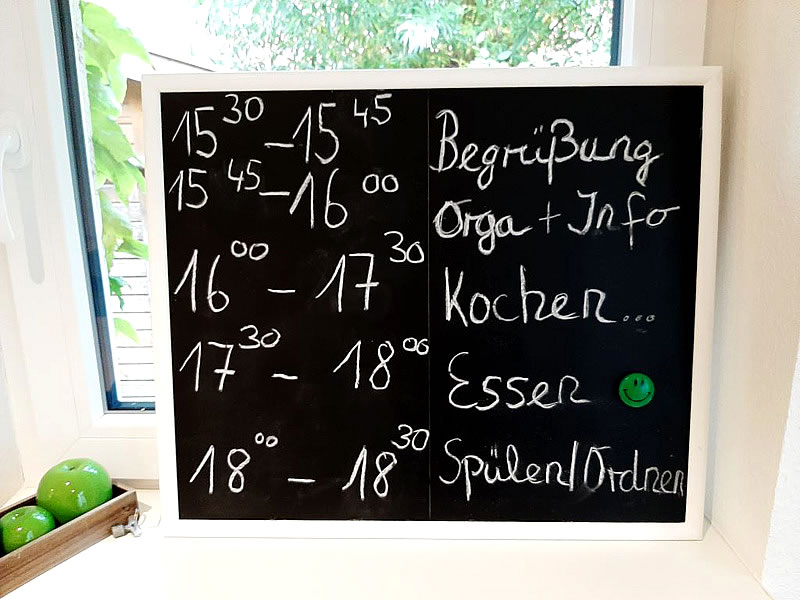 15 30 – 15 45 Begrüßung
15 45 – 16 00 Orga + Info
16 00 – 17 30 Kochen...
17 30 – 18 00 Essen
18 00 – 18 30 Spülen/Ordnen